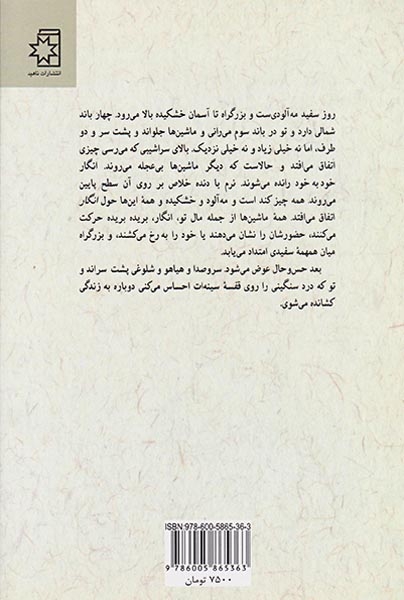 انتشارات ناهید
روز سفید مه‌آلودی‌ست و بزرگراه تا آسمان خشکیده بالا می‌رود. چهار باند
شمالی دارد و تو در باند سوم می‌رانی و ماشین‌ها جلواند و پشت سر و دو
طرف، اما نه خیلی زیاد و نه خیلی نزدیک. بالای سراشیبی که می‌رسی چیزی
اتفاق می‌افتد و حالاست که دیگر ماشین‌ها بی‌عجله می‌روند. انگار
خودبه‌خود رانده می‌شوند. نرم با دنده خلاص بر روی آن سطح پایین
می‌روند. همه چیز کند است و مه‌آلود و خشکیده و همهٔ این‌ها حول انگار
اتفاق می‌افتد. همهٔ ماشین‌ها از جمله مال تو، انگار، بریده بریده حرکت
می‌کنند، حضورشان را نشان می‌دهند یا خود را به رخ می‌کشند، و بزرگراه
میان همهمهٔ سفیدی امتداد می‌یابد.
بعد حس‌وحال عوض می‌شود. سروصدا و هیاهو و شلوغی پشت سراند و
تو که درد سنگینی را روی قفسهٔ سینه‌ات احساس می‌کنی دوباره به زندگی
کشانده می‌شوی.
ISBN:978-600-5865-36-3
9 786005 865363
۷۵۰۰ تومان